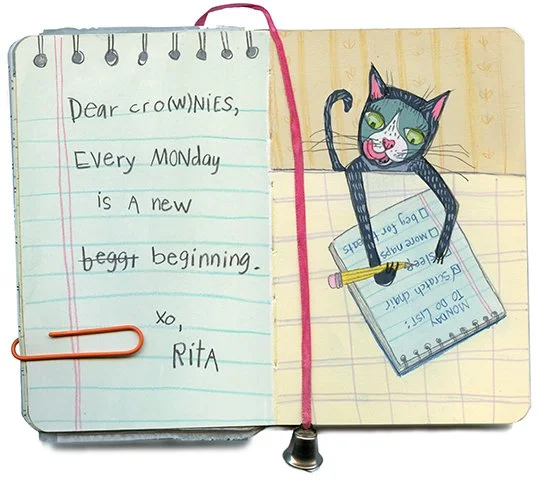 Dear cro(w)nies,
Every Monday
is a new
beggt beginning.
xo,
Rita
MONDAY
TO DO LIST:
scratch chair
sleep
more naps
beg for treats